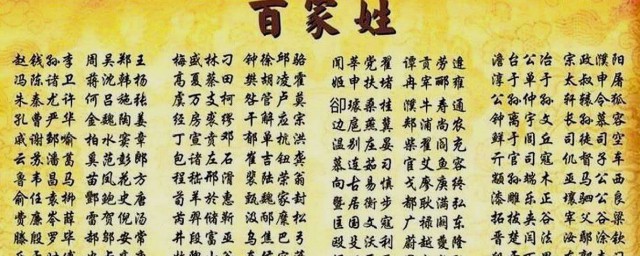 百家姓
赵钱孙李 周吴郑王 梅盛林刁 钟徐邱骆 闻莘党翟 谭贡劳逄 澹台公冶 宗政濮阳
冯陈褚卫 蒋沈韩杨 高夏蔡田 樊胡凌霍 姬申扶堵 冉宰郦雍 淳于单于 太叔申屠
朱秦尤许 何吕施张 虞万支柯 昝管卢莫 郤璩桑桂 濮牛寿通 公孙仲孙 轩辕令狐
孔曹严华 金魏陶姜 经房裘缪 干解应宗 边扈燕冀 郏浦尚农 钟离宇文 长孙慕容
戚谢邹喻 柏水窦章 丁宣贲邓 郁单杭洪 温别庄晏 柴瞿阎充 鲜于闾丘 司徒司空
云苏潘葛 奚范彭郎 包诸左石 崔吉钮龚 慕连茹习 宦艾鱼容 亓官司寇
鲁韦昌马 苗凤花方 程嵇邢滑 裴陆荣翁 向古易慎 戈廖庾终
俞任袁柳 酆鲍史唐 荀羊於惠 暨居衡步 都耿满弘 漆雕乐正
费廉岑薛 雷贺倪汤 芮羿储靳 匡国文寇 广禄阙 拓跋夹谷
滕殷罗毕 郝邬安常 井段富巫 乌焦巴弓 殴殳沃利 蔚越夔隆 晋楚闫法